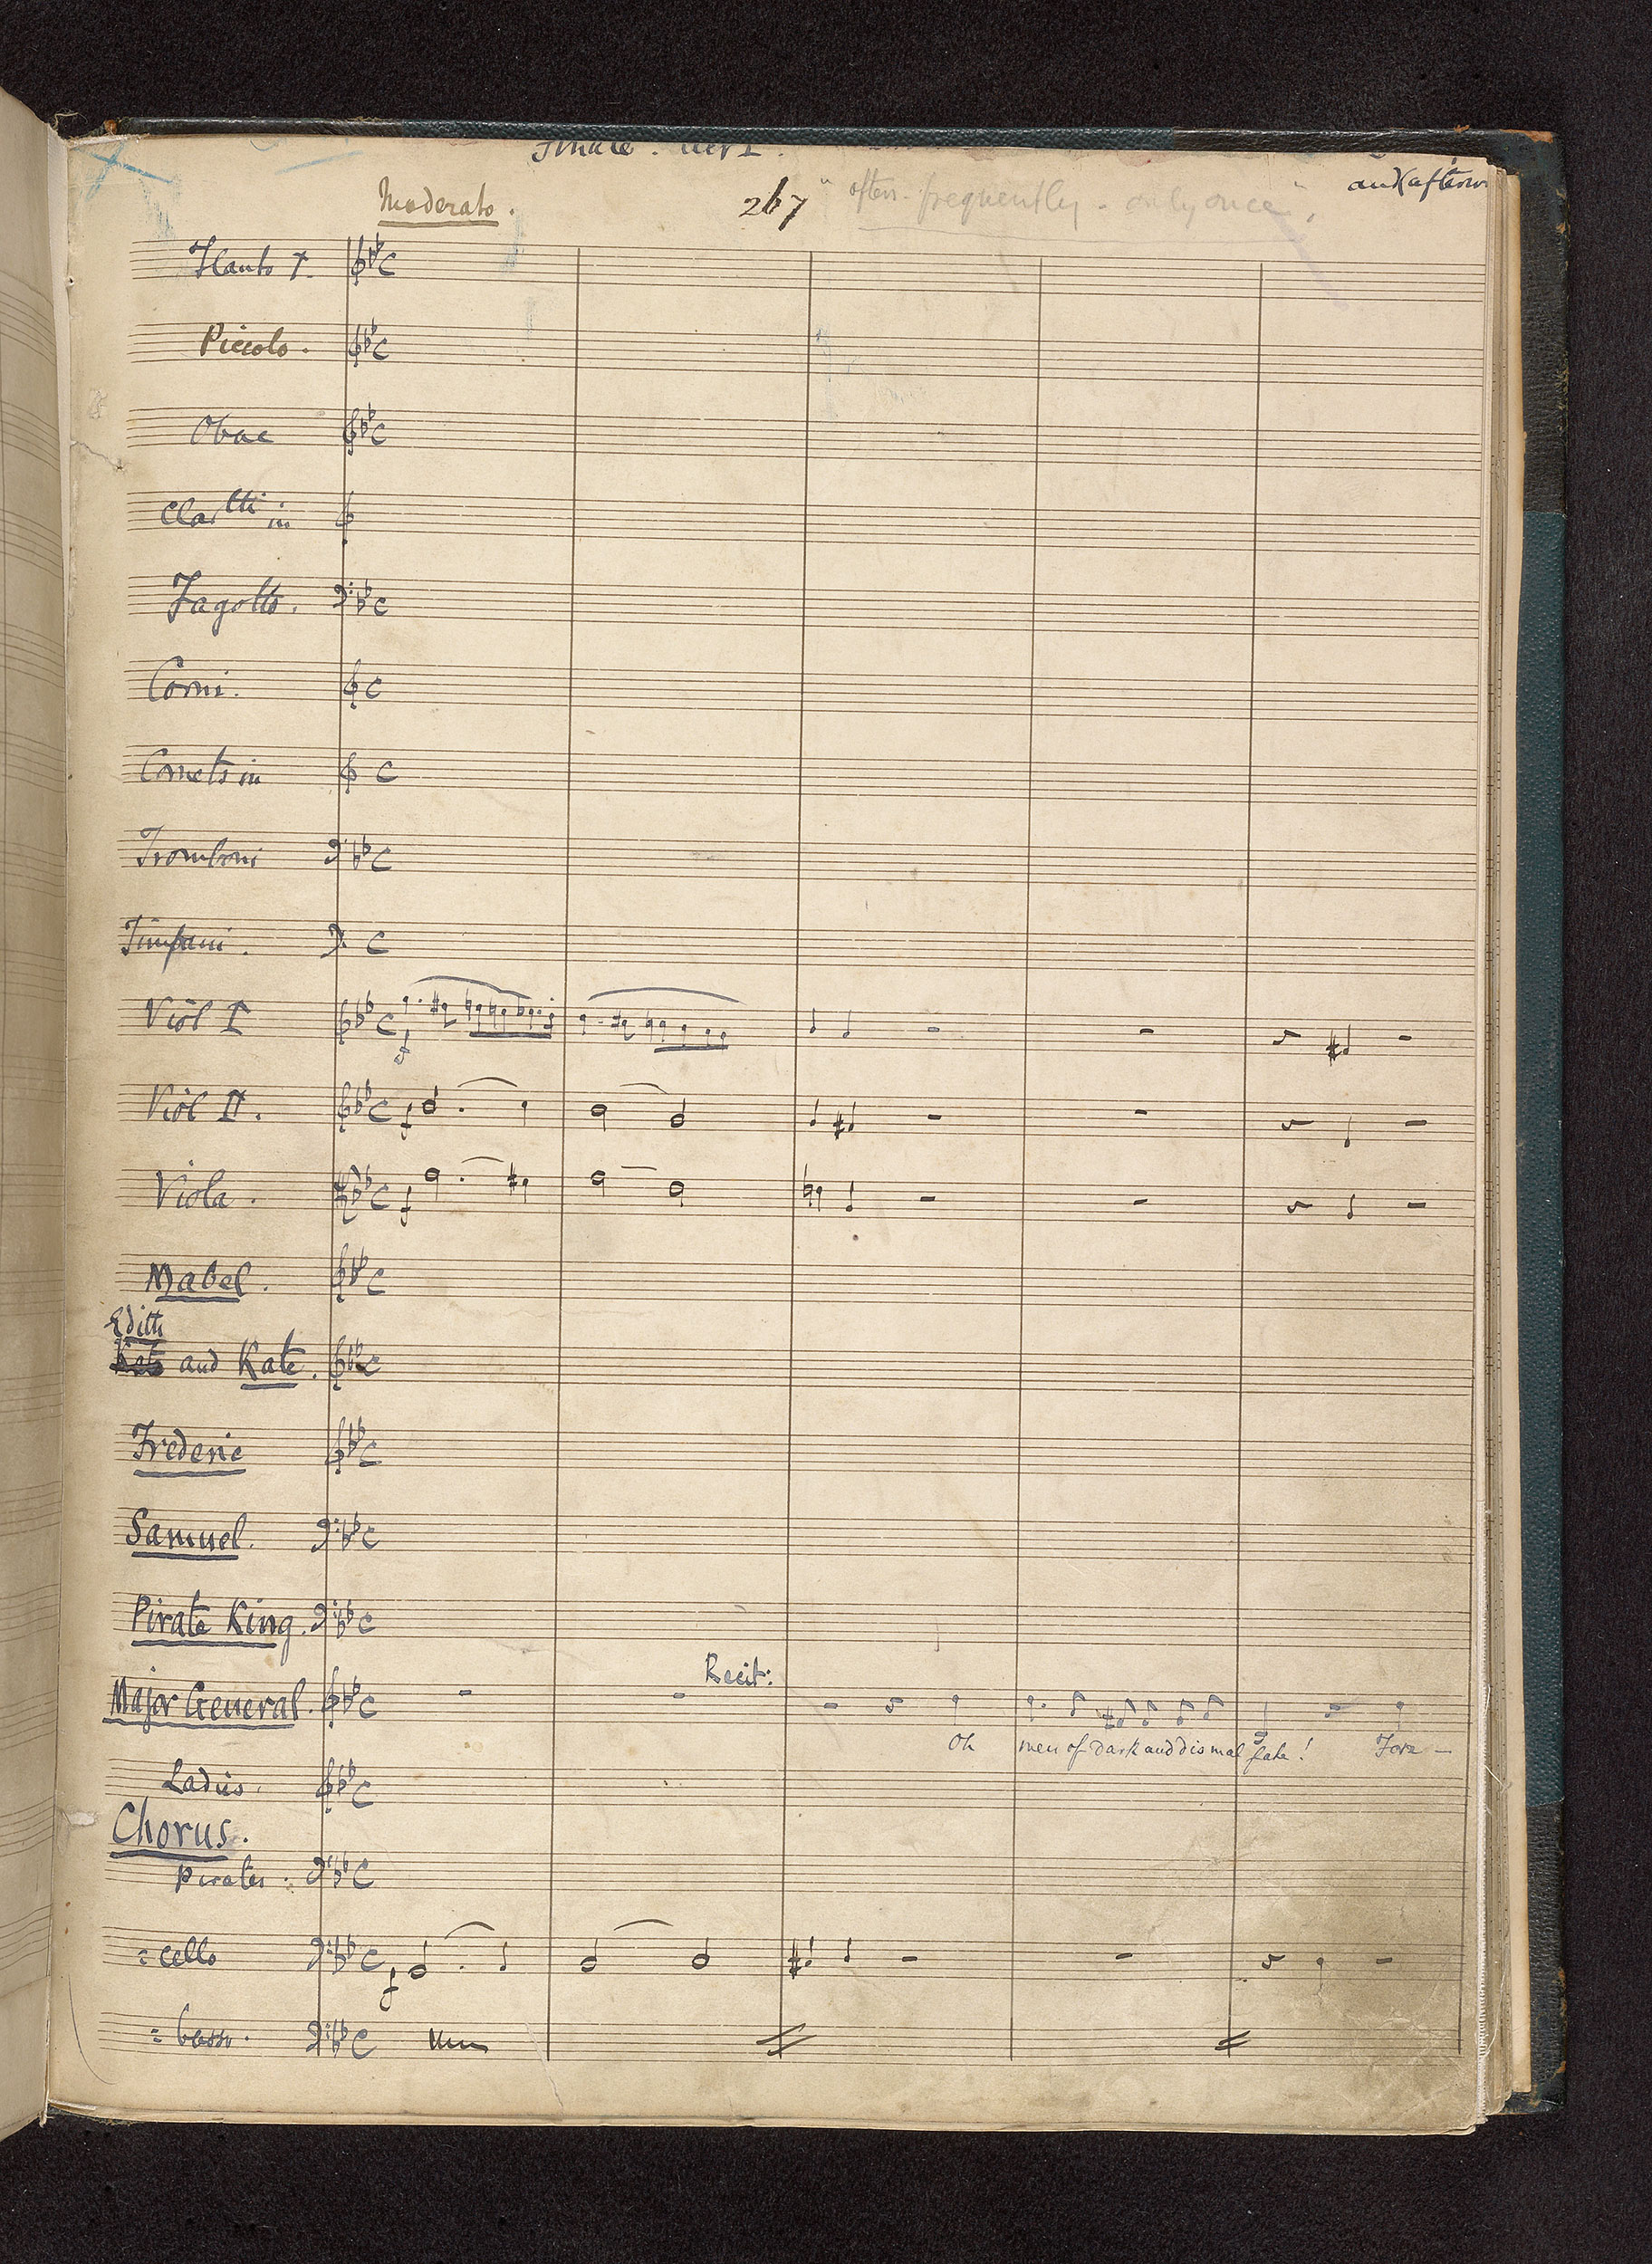 Finale. Act I.
and (afterw
Moderato.
267
" often - frequently - only once",
Flauto I.
Piccolo.
Oboe
Clartti in
Fagotto.
Corni.
Cornets in
Tromboni
Timpani.
Viol I
f
Viol II.
f
Viola.
f
Mabel.
Edith
Kate and Kate.
Frederic
Samuel.
Pirate King.
Recit:
Major General.
Oh men of dark and dismal fate! Fore -
Ladies.
Chorus.
Pirates.
=cello
f
= basso.